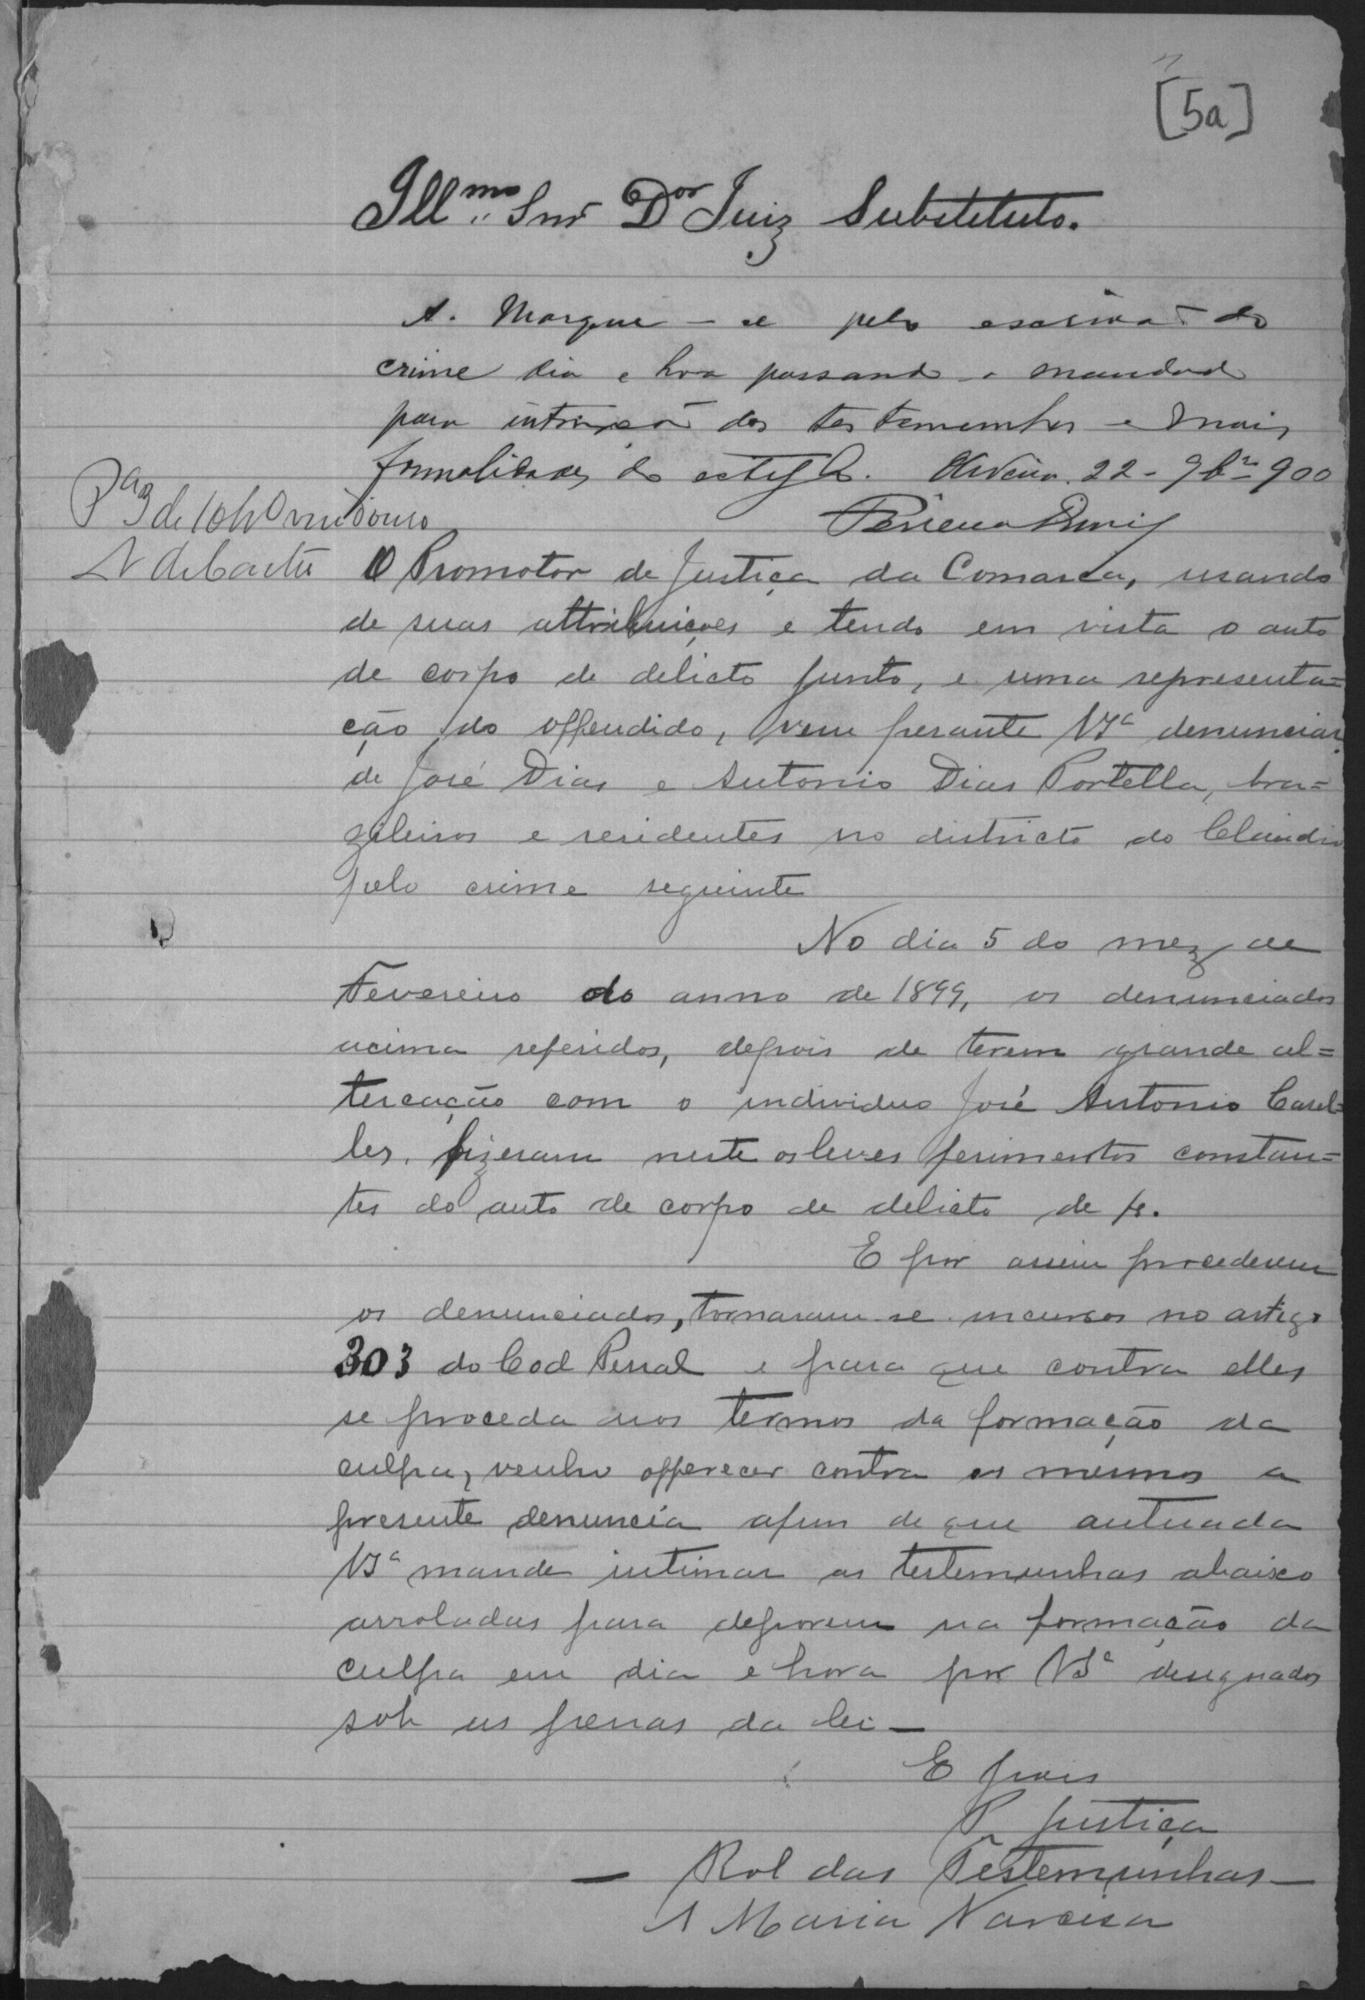 [5a]
Ill.mo Snr Dor Juiz Substituto.
A. Marque-se pelo escrivão do
crime dia e hora passando-se mandado
para intimação das testemunhas e mais
formalidades do estylo. Oliveira. 22-9br-900
Pereira Diniz
O Promotor de Justiça da Comarca, usando
de suas attribuições e tendo em vista o auto
de corpo de delicto junto, e uma representa=
ção do offendido, vem perante VSa denunciar
de José Dias e Antonio Dias Portella, bra=
zileiros e residentes no districto do Claudio
pelo crime seguinte
No dia 5 do mez de
Fevereiro do anno de 1899, os denunciados
acima referidos, depois de terem grande al=
tercação com o individuo José Antonio
fizeram neste os leves ferimentos constan=
tes do auto de corpo de delicto de f.
E por assim procederem
os denunciados, tornaram-se incursos no artigo
303 do Cod Penal e para que contra elles
se proceda aos termos da formação da
culpa, venho offerecer contra os mesmos a
presente denuncia afim de que autuada
VSa mande intimar as testemunhas abaixo
arroladas para deporem na formação da
culpa em dia e hora por VSa designados
sob as penas da lei —
E pois
P. Justiça
— Rol das Testemunhas —
1 Maria Narcisa